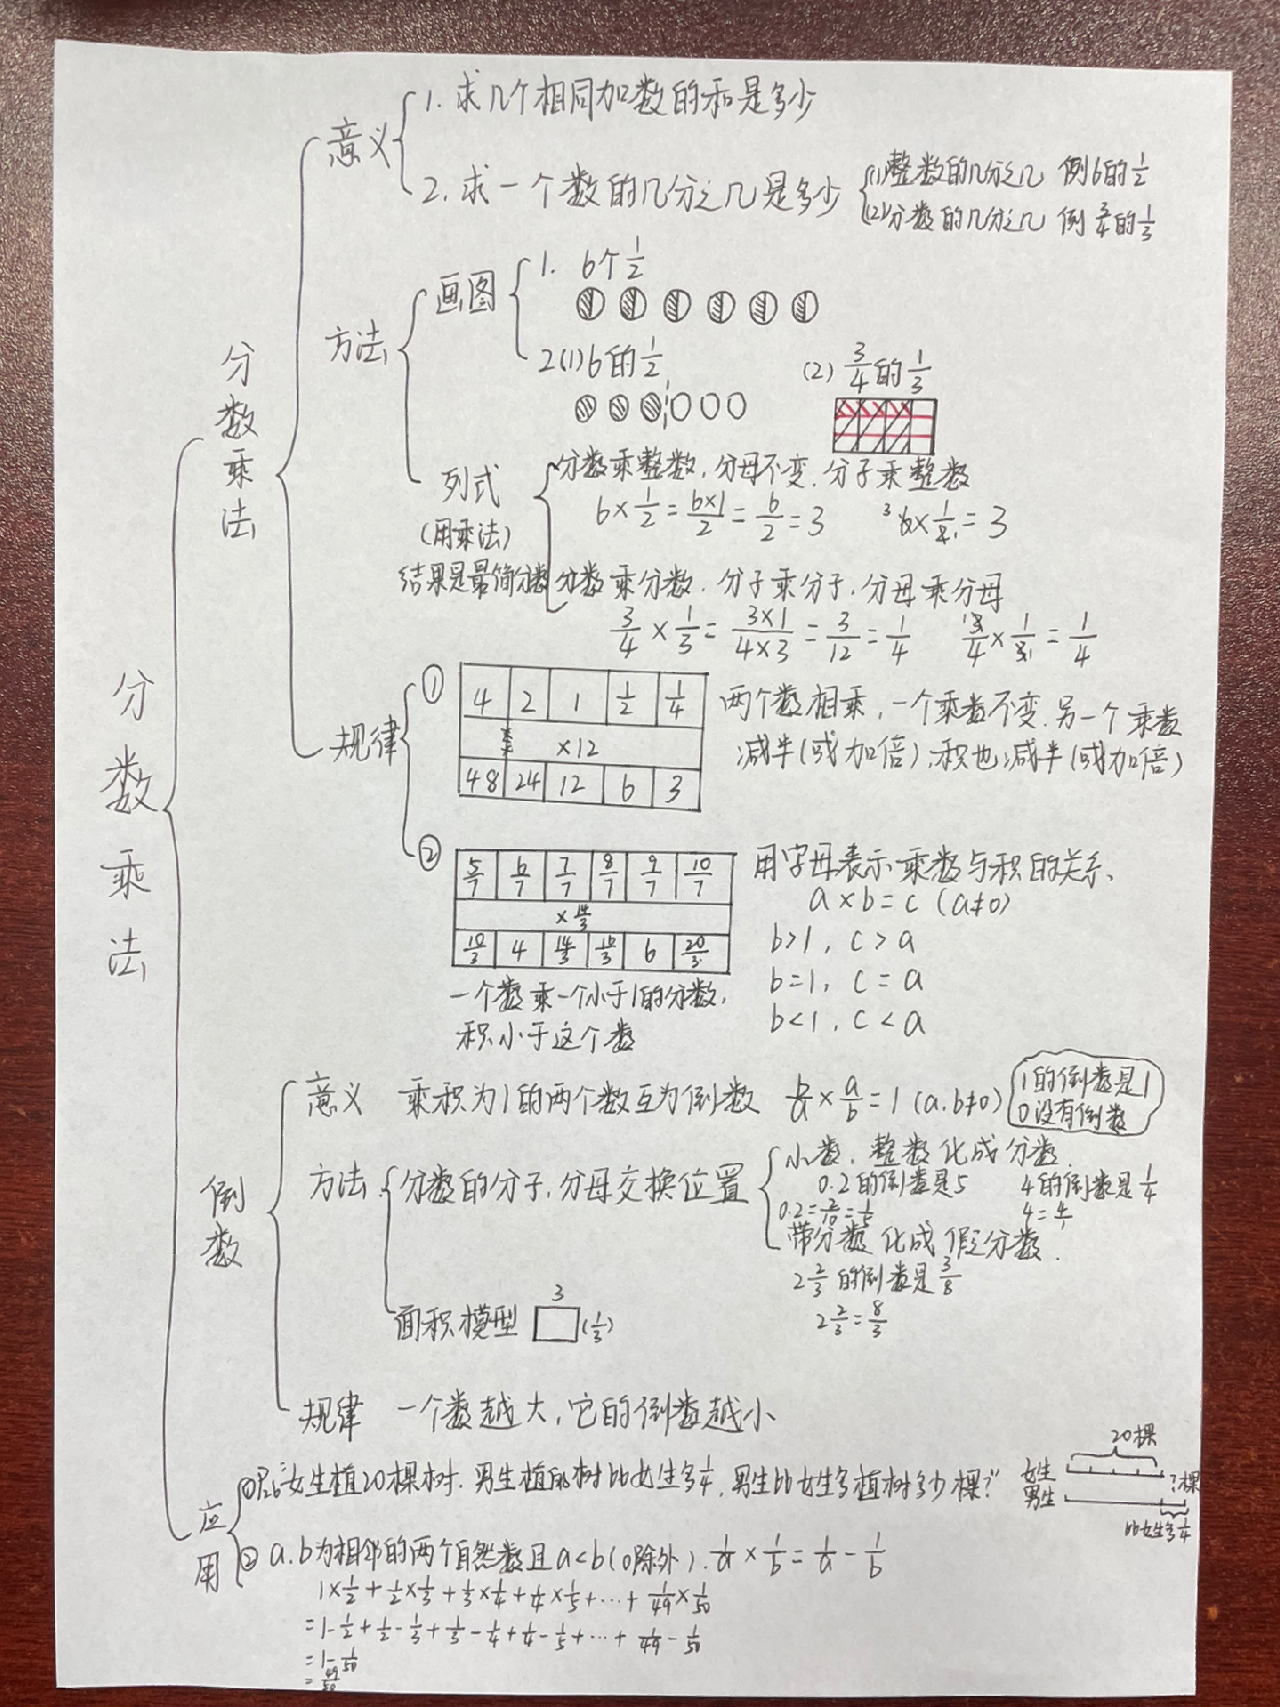 分数乘法
分数乘法
意义
1. 求几个相同加数的和是多少
2. 求一个数的几分之几是多少
(1)整数的几分之几 例6的1/2
(2)分数的几分之几 例3/4的1/3
方法
画图
1. 6个1/2
2(1)6的1/2
(2) 3/4的1/3
列式
(用乘法)
结果是最简分数
分数乘整数,分母不变.分子乘整数
6×1/2=6×1/2=6/2=3 ³6×1/2₁=3
分数乘分数.分子乘分子,分母乘分母
3/4×1/3=3×1/4×3=3/12=1/4 ¹3/4×1/3₁=1/4
规律
①
4 2 1 1/2 1/4
×12
48 24 12 6 3
两个数相乘,一个乘数不变.另一个乘数
减半(或加倍),积也减半(或加倍)
②
5/7 6/7 7/7 8/7 9/7 10/7
×14/3
10/3 4 14/3 16/3 6 20/3
一个数乘一个小于1的分数,
积小于这个数
用字母表示乘数与积的关系
a×b=c (a≠0)
b>1, c>a
b=1, c=a
b<1, c<a
倒数
意义 乘积为1的两个数互为倒数 b/a×a/b=1 (a.b≠0)
1的倒数是1
0没有倒数
方法
分数的分子,分母交换位置
小数.整数化成分数.
0.2的倒数是5 4的倒数是1/4
0.2=2/10=1/5 4=4/1
带分数化成假分数.
2 2/3的倒数是3/8
2 2/3=8/3
面积模型 3 (1/3)
规律 一个数越大,它的倒数越小
应用
女生植20棵树.男生植的树比女生多1/4,男生比女生多植树多少棵?"
20棵
女生
男生
?棵
比女生多1/4
② a.b为相邻的两个自然数且a<b(0除外).1/a×1/b=1/a-1/b
1×1/2+1/2×1/3+1/3×1/4+1/4×1/5+…+1/49×1/50
=1-1/2+1/2-1/3+1/3-1/4+1/4-1/5+…+1/49-1/50
=1-1/50
=49/50